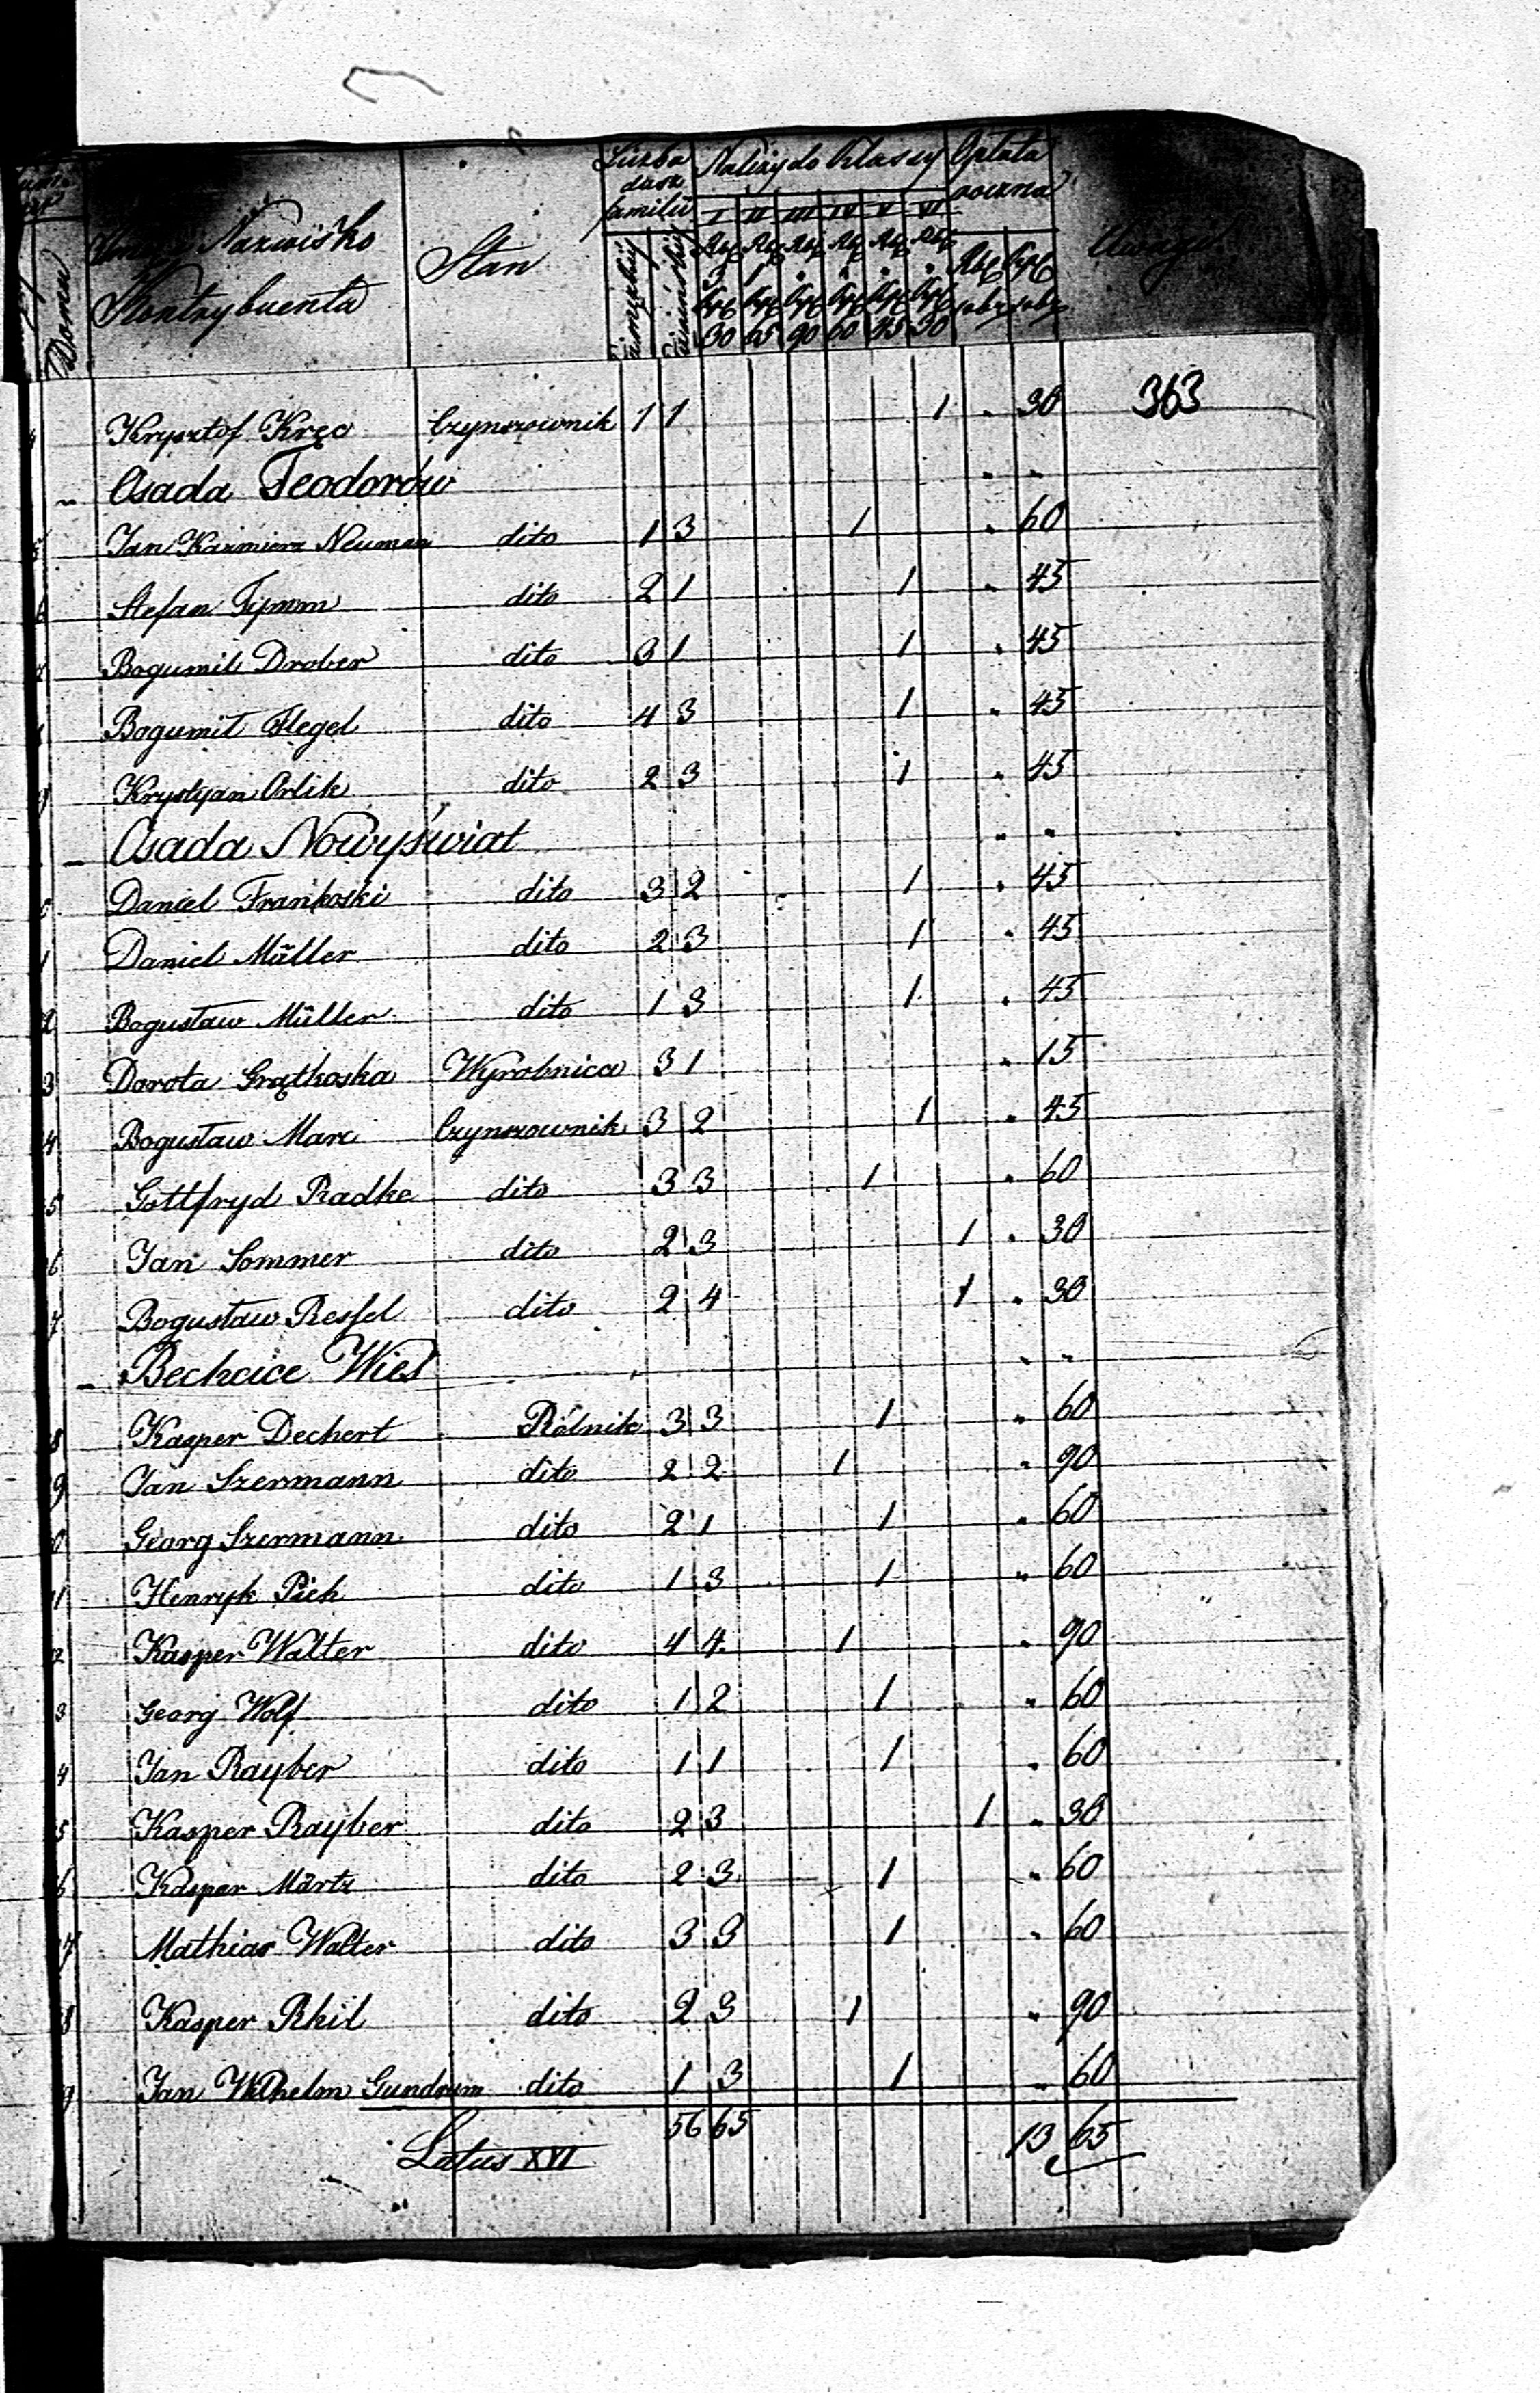 Liczba dusz familii
Należy do Klassy
Opłata roczna
Nazwisko Kontrybuenta
Stan
Domu
I II III IV V VI
30 65 90 60 45 30
363
Krysztof Kręc Czynszownik 1 1 1 " 30
Osada Teodorów " "
Jan Kazmierz Neuman dito 1 3 1 " 60
Stefan Tymm dito 2 1 1 " 45
Bogumil Drober dito 3 1 1 " 45
Bogumił Flegel dito 4 3 1 " 45
Krystyan Orlik dito 2 3 1 " 45
Osada Nowyświat " "
Daniel Frankoski dito 3 2 1 " 45
Daniel Müller dito 2 3 1 " 45
Bogusław Müller dito 1 3 1 " 45
Dorota Grątkoska Wyrobnica 3 1 " 15
Bogusław Marc Czynszownik 3 2 1 " 45
Gottfryd Radke dito 3 3 1 " 60
Jan Sommer dito 2 3 1 " 30
Bogusław Ressel dito 2 4 1 " 30
Bechcice Wieś " "
Kasper Dechert Rólnik 3 3 1 " 60
Jan Szermann dito 2 2 1 " 90
Georg Szermann dito 2 1 1 " 60
Henryk Pich dito 1 3 1 " 60
Kasper Walter dito 4 4 1 " 90
Georg Wolf dito 1 2 1 " 60
Jan Rayber dito 1 1 1 " 60
Kasper Rayber dito 2 3 1 " 30
Kasper Märtz dito 2 3 1 " 60
Mathias Walter dito 3 3 1 " 60
Kasper Rhil dito 2 3 1 " 90
Jan Wilhelm Gundrum dito 1 3 1 " 60
Latus XVI 56 65 13 65